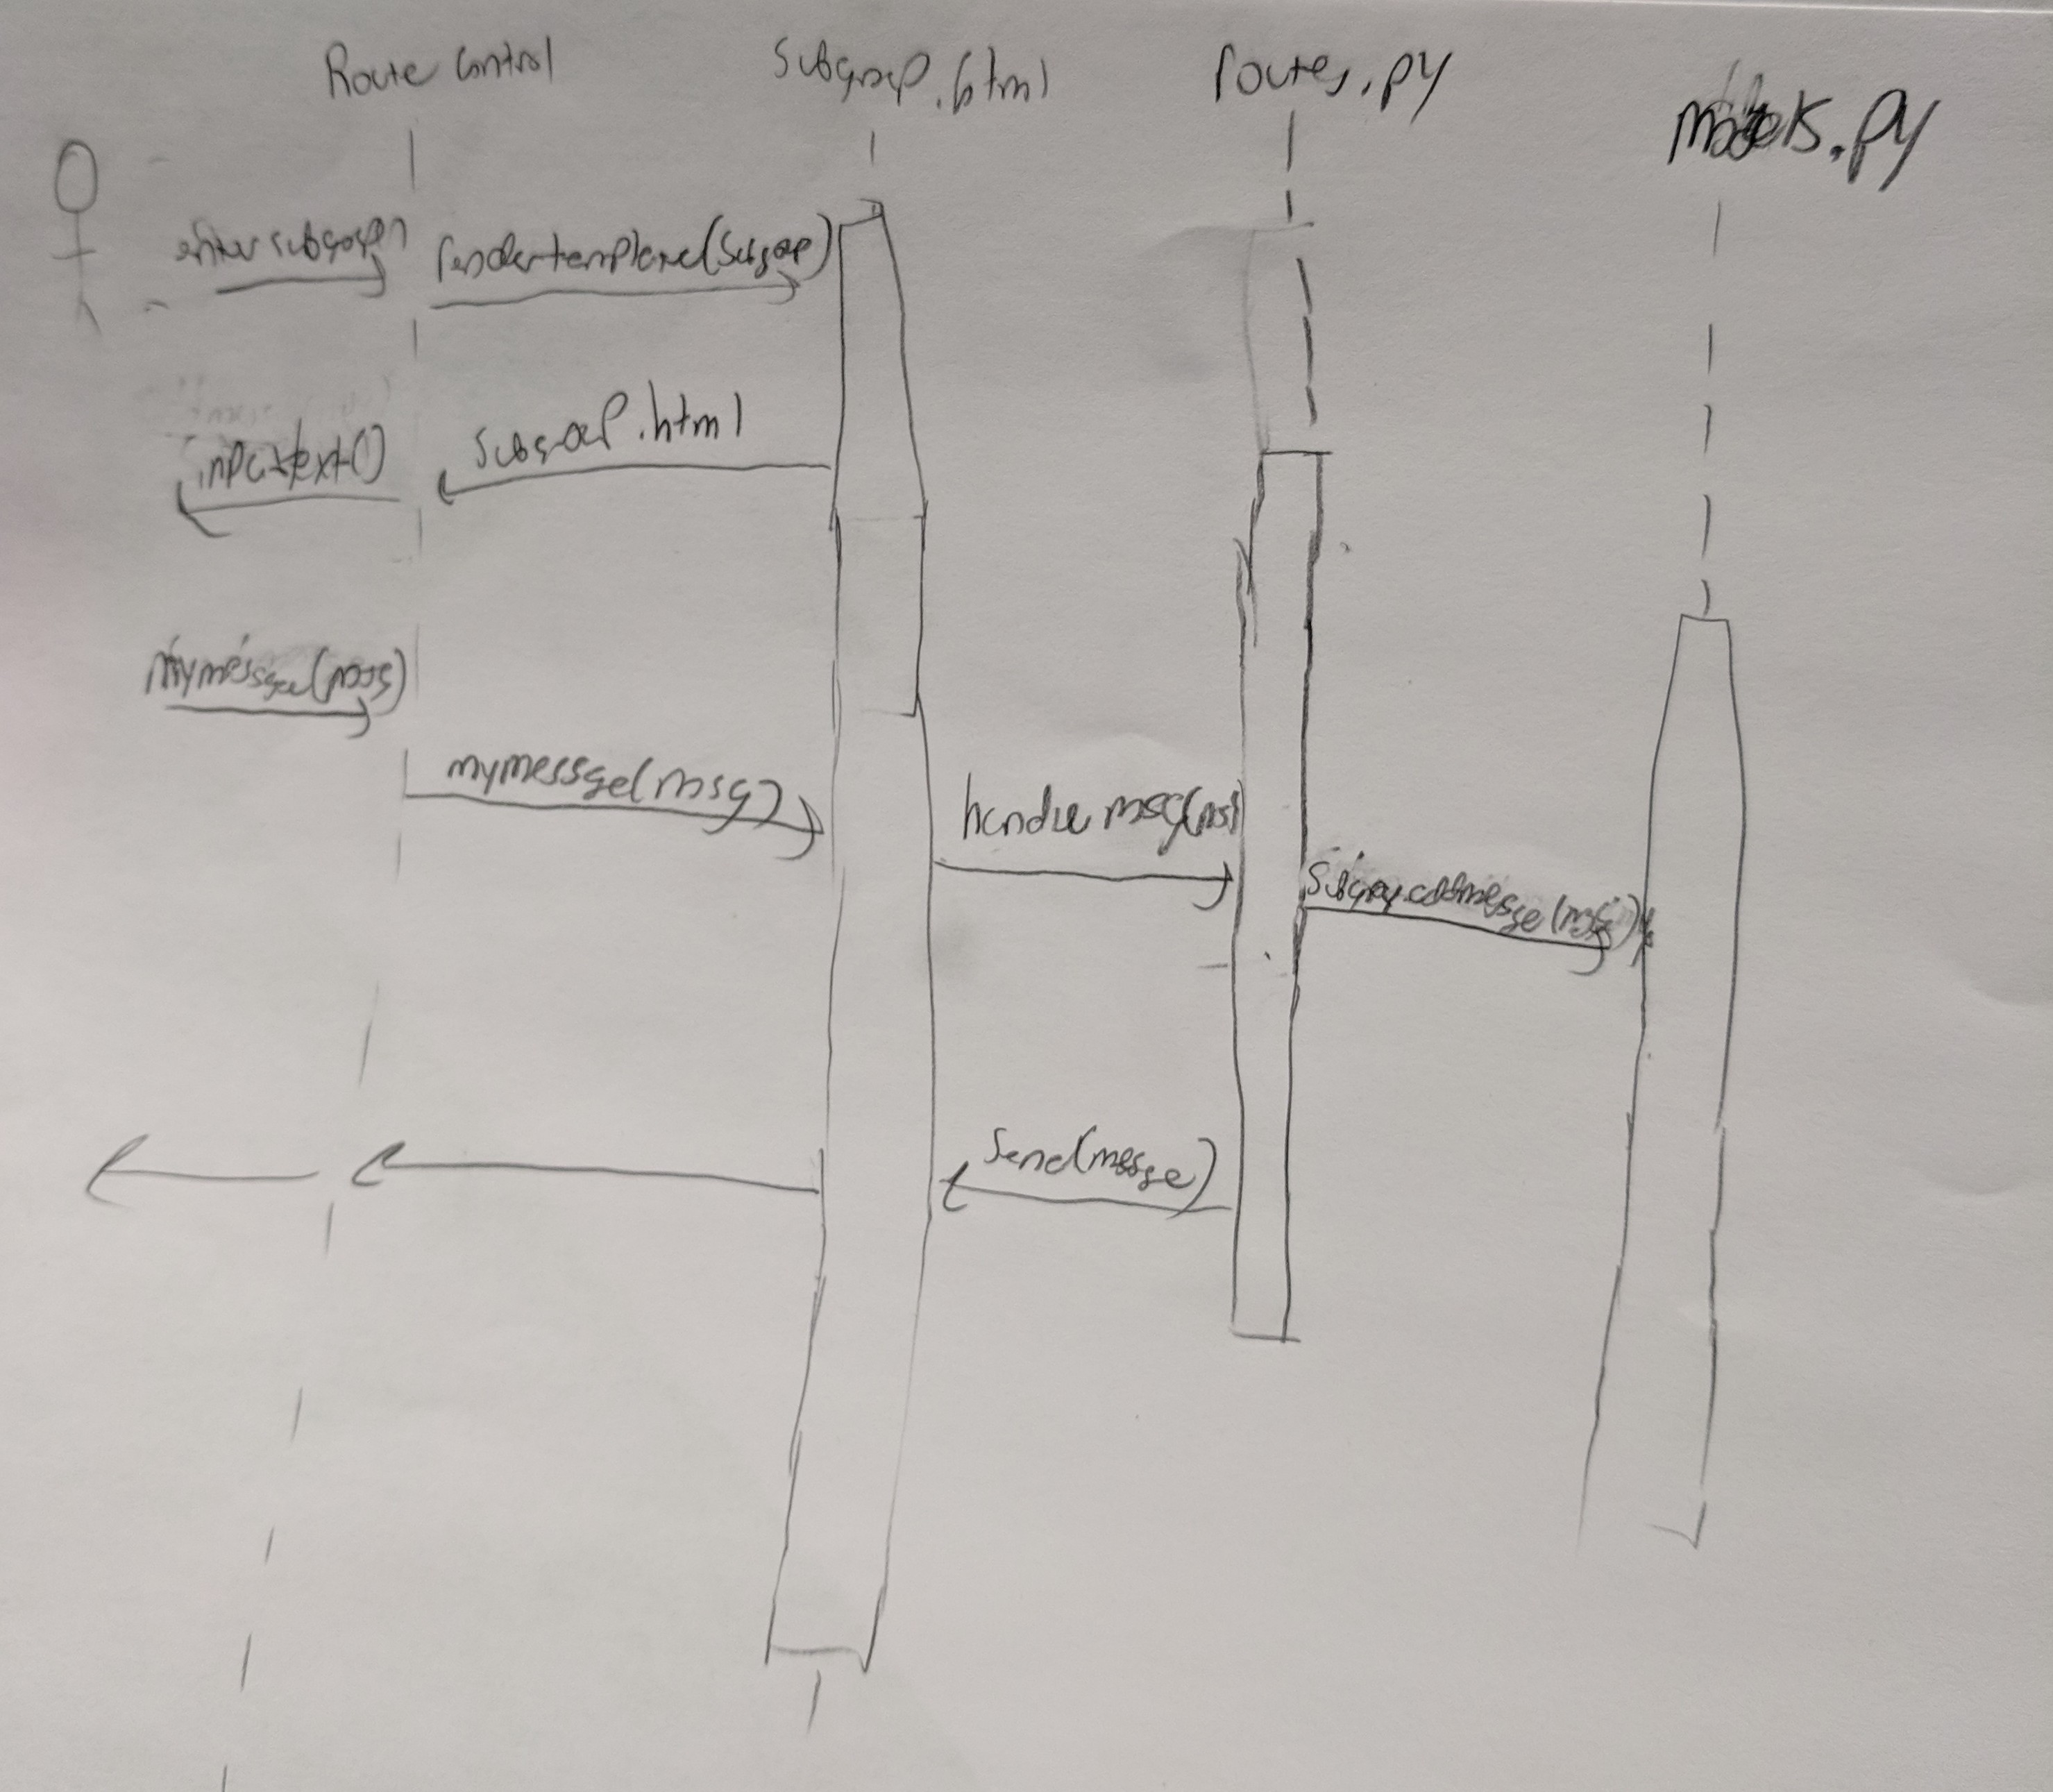 Route Control
Subgroup.html
routes.py
models.py
enter subgroup
rendertemplate(Subgroup)
inputtext()
subgroup.html
mymessage(msg)
mymessage(msg)
handle msg(msg)
Subgroup.addmessage(msg)
Send(message)